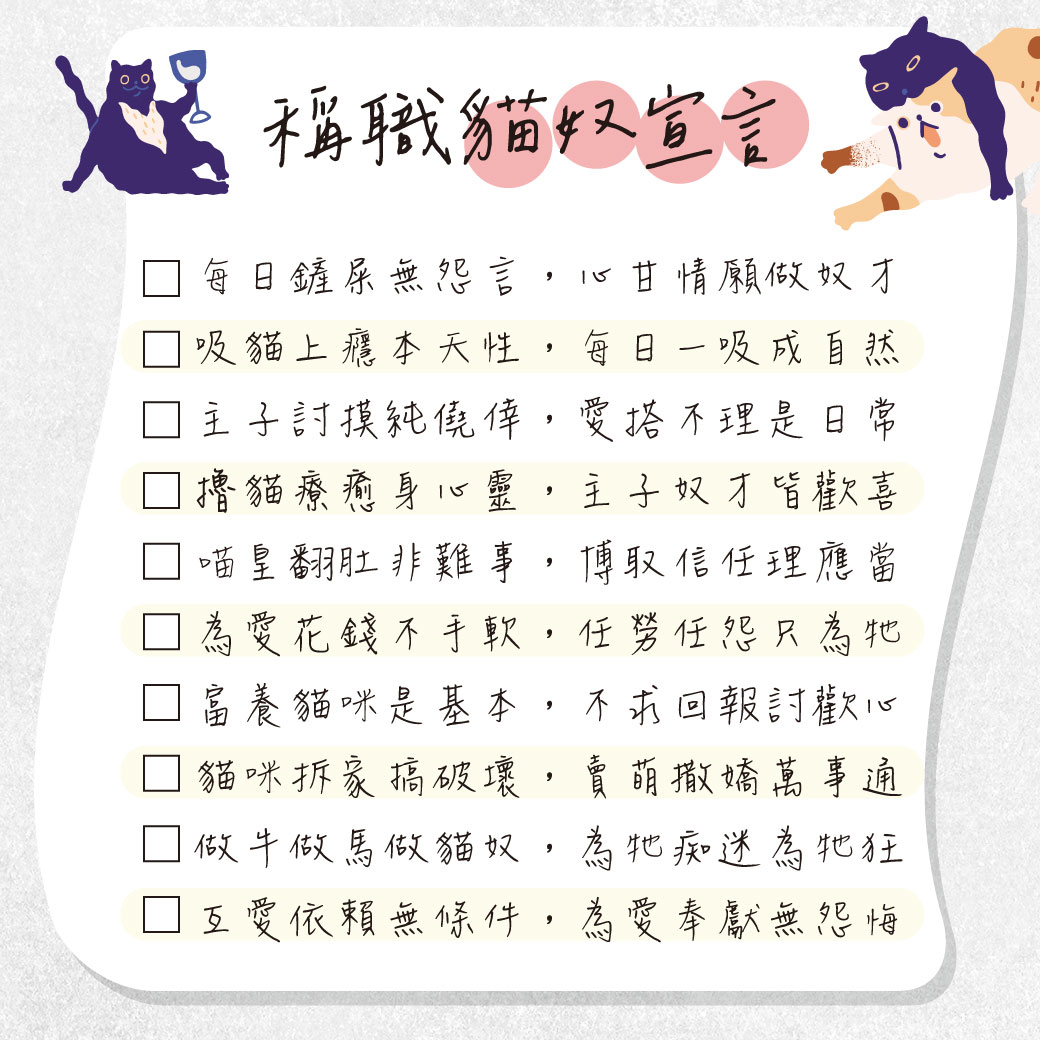 稱職貓奴宣言
每日鏟屎無怨言，心甘情願做奴才
吸貓上癮本天性，每日一吸成自然
主子討摸純僥倖，愛搭不理是日常
擼貓療癒身心靈，主子奴才皆歡喜
喵皇翻肚非難事，博取信任理應當
為愛花錢不手軟，任勞任怨只為牠
富養貓咪是基本，不求回報討歡心
貓咪拆家搞破壞，賣萌撒嬌萬事通
做牛做馬做貓奴，為牠痴迷為牠狂
互愛依賴無條件，為愛奉獻無怨悔